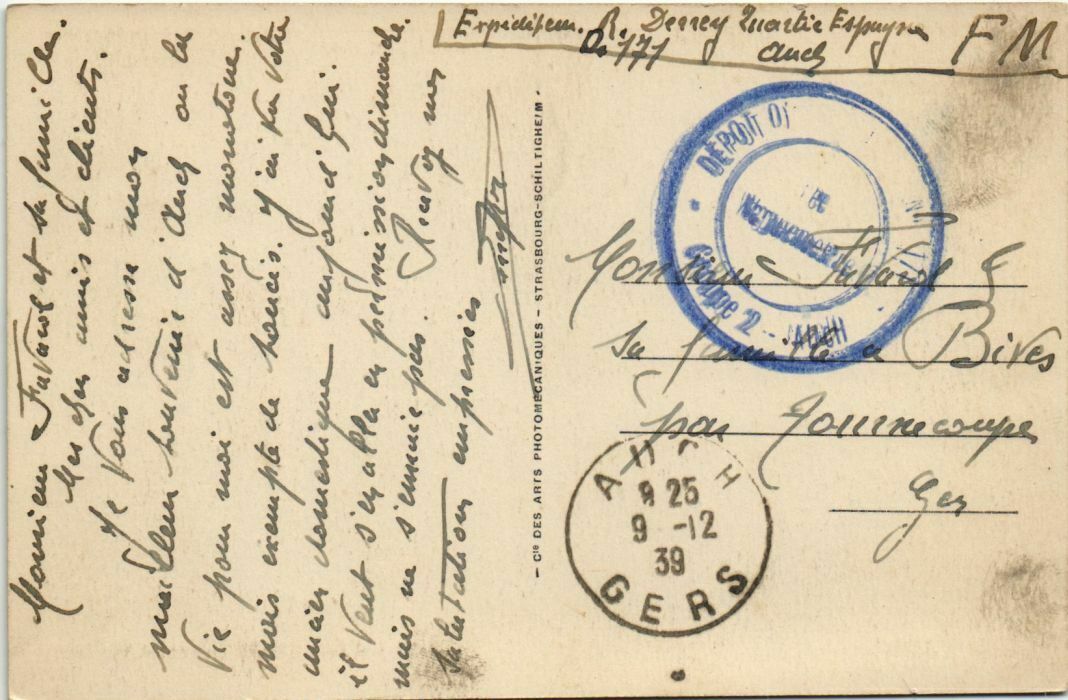 Expéditeur. R. Derrey Quartie Espagne
D. 171 Auch
F M
Monsieur Favarol et sa famille.
Mes chers amis et clients.
Je vous adresse mon
meilleur souvenir d'Auch ou la
Vie pour moi est assez monotone
mais exempte de soucis. J'ai vu votre
ancien domestique aujourd'hui.
il veut s'en aller en permission dimanche
mais ne s'ennuie pas. Recevez mes
salutations empressées
- Cie DES ARTS PHOTOMECANIQUES - STRASBOURG-SCHILTIGHEIM -
* DÉPOT
Groupe 2 - AUCH
Monsieur Favarol &
sa famille a Bives
par Tournecoupe
Gers
AUCH
9 25
9 -12
39
GERS